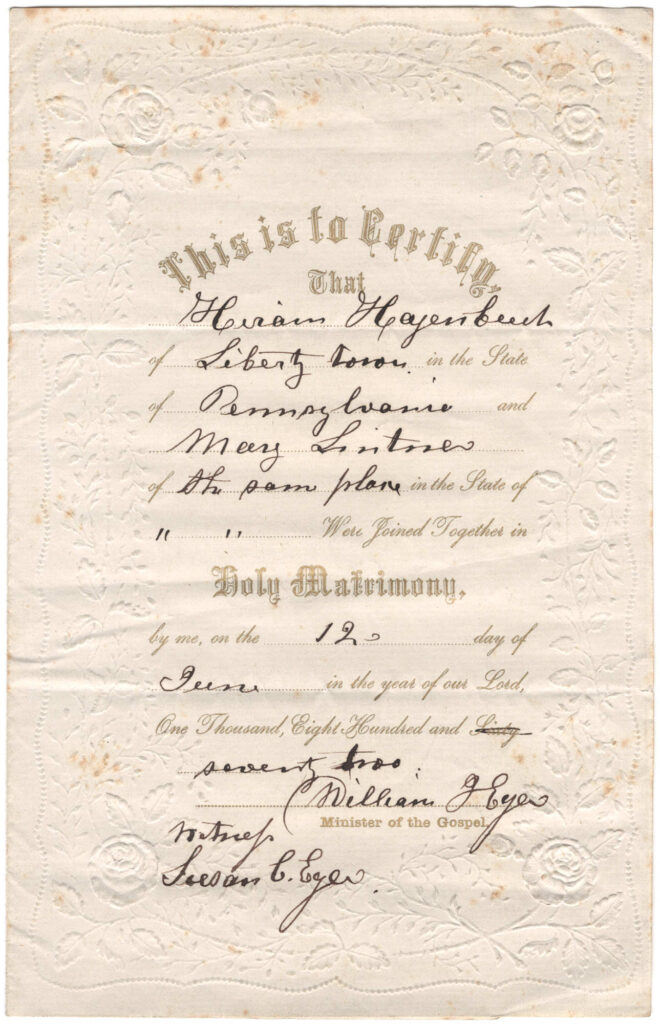 This is to Certify,
That
Hiram Hagenbuch
of Liberty town in the State
of Pennsylvania and
Mary Lintner
of the same place in the State of
" " Were Joined Together in
Holy Matrimony,
by me, on the 12 day of
June in the year of our Lord,
One Thousand, Eight Hundred and Sixty
seventy two.
William J Eyer
Minister of the Gospel.
Witness
Susan C. Eyer.